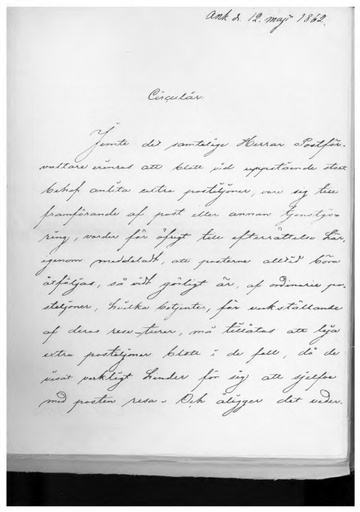 Ank d. 12 maji 1862.
Circulär
Jemte det samtelige Herrar Postför-
valtare erinras att blott vid uppstående stort
behof anlita extra postiljoner, vare sig till
framförande af post eller annan tjenstgö-
ring, varder för öfrigt till efterrättelse här-
igenom meddeladt, att posterne alltid böra
åtföljas, så vidt görligt är, af ordinarie po-
steljoner, hvilka betjenter, för verkställande
af deras resor, må tillåtas att leja
extra posteljoner blott i de fall, då de
visat verkligt hinder för sig att sjelfve
med posten resa. Och åligger det veder-